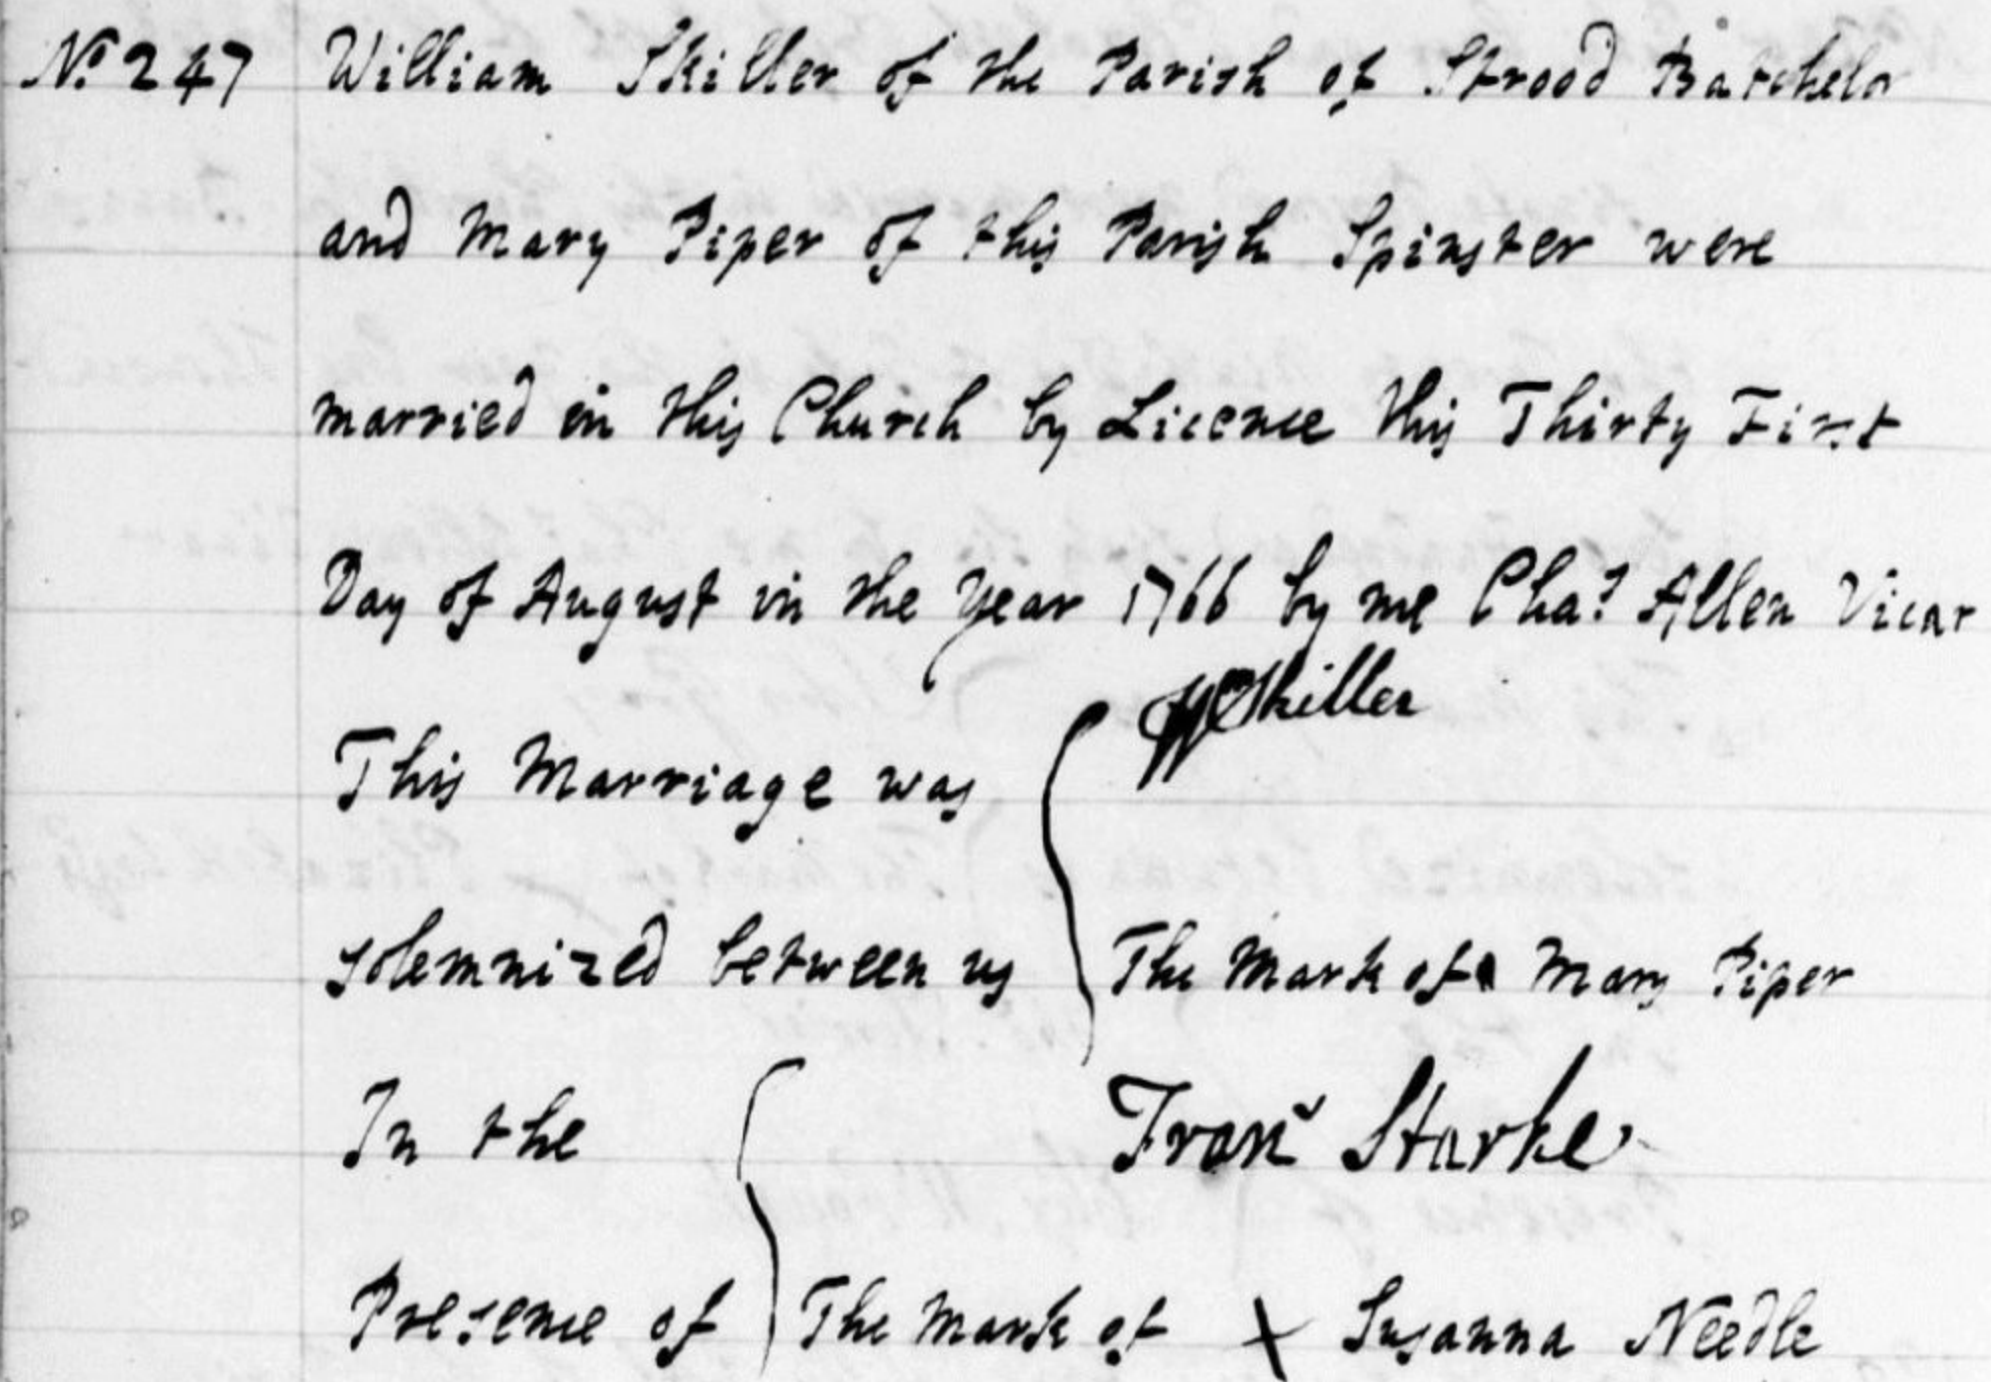 No. 247 William Skiller of the Parish of Strood Batchelor
and Mary Piper of this Parish Spinster were
married in this Church by Licence this Thirty First
Day of August in the year 1766 by me Chas. Allen Vicar
W Skiller
This Marriage was
solemnized between us The Mark of Mary Piper
In the Fran Starke
Presence of The Mark of X Susanna Needle